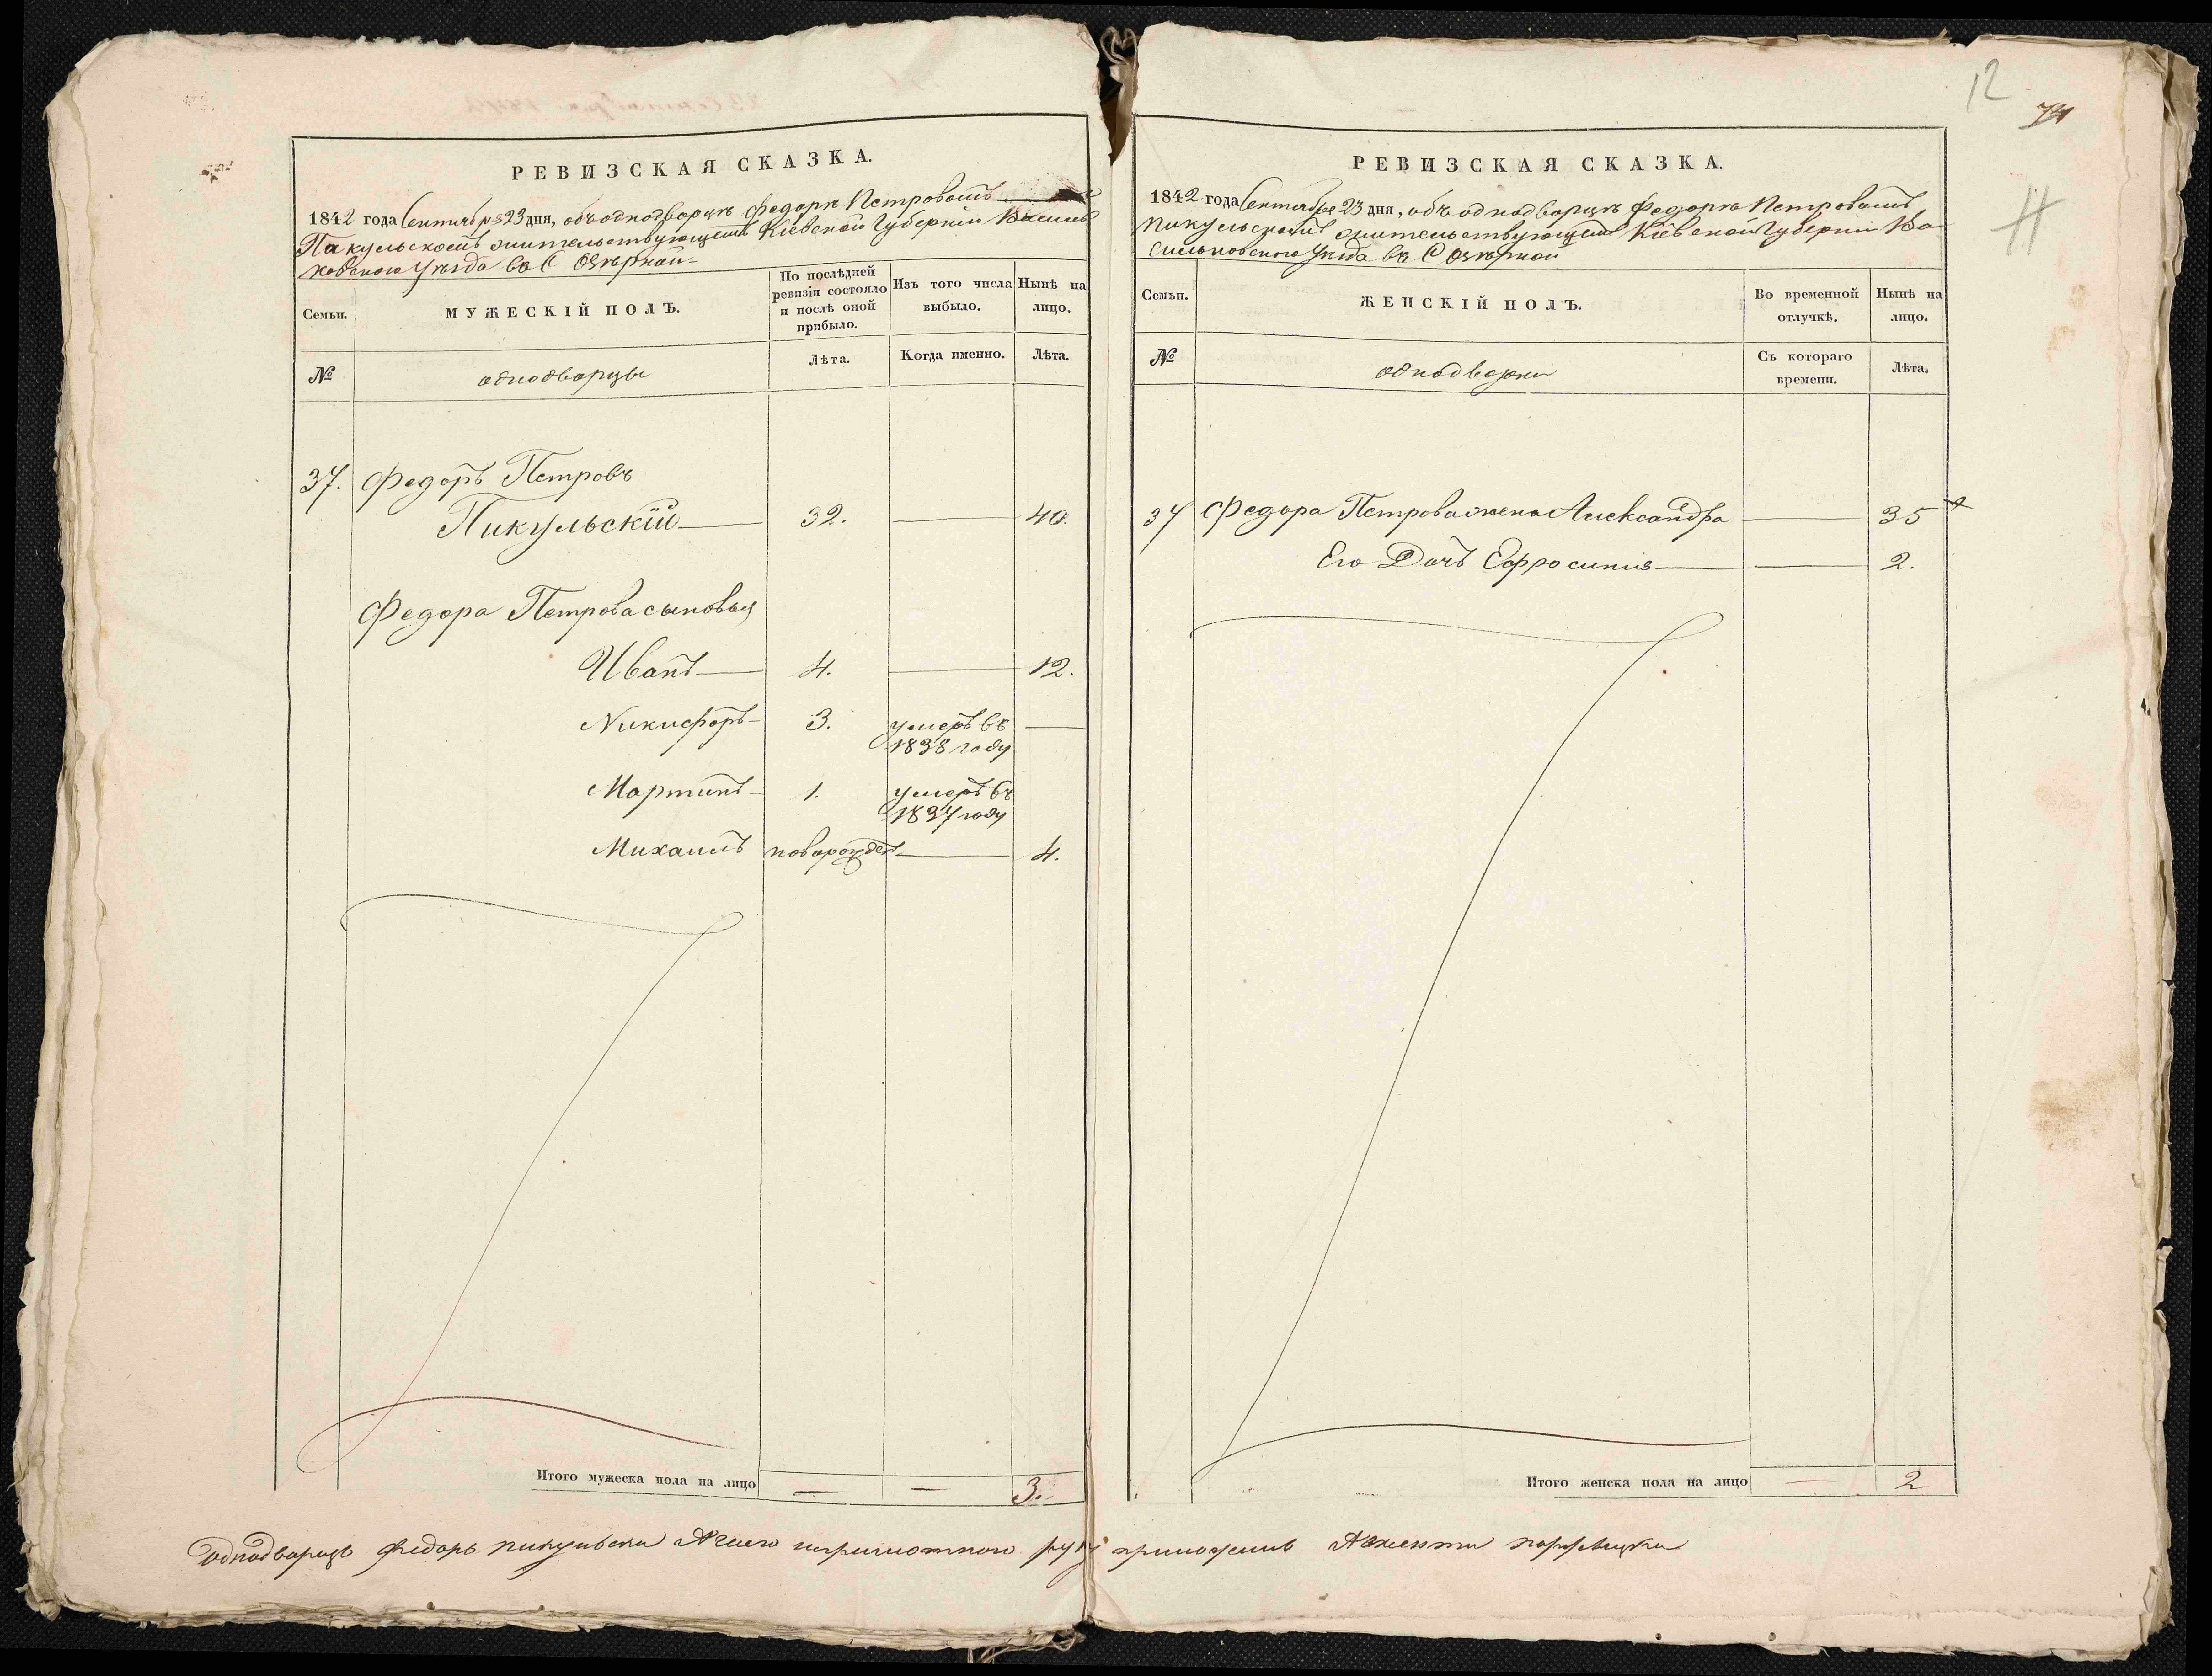 12
РЕВИЗСКАЯ СКАЗКА.
1842 года Сентября 23 дня, объ однодворцѣ Федорѣ Петровомъ
Пикульскомъ жительствующемъ Кіевской Губерніи Василь
ковского Уѣзда въ С Озѣрной
Семьи.
МУЖЕСКІЙ ПОЛЪ.
По послѣдней
ревизіи состояло
и послѣ оной
прибыло.
Изъ того числа
выбыло.
Нынѣ на
лицо.
№
однодворцы
Лѣта.
Когда именно.
Лѣта.
37. Федоръ Петровъ
Пикульскій 32. 40.
Федора Петрова сыновья
Иванъ 4. 12.
Никифоръ 3. умеръ въ
1838 году
Мартинъ 1. умеръ въ
1837 году
Михаилъ новорожден 4.
Итого мужеска пола на лицо — — 3.
РЕВИЗСКАЯ СКАЗКА.
1842 года Сентября 23 дня, объ однодворцѣ Федорѣ Петровомъ
Пикульскомъ жительствующемъ Кіевской Губерніи Ва
сильковского Уѣзда въ С Озѣрной
Семьи.
ЖЕНСКІЙ ПОЛЪ.
Во временной
отлучкѣ.
Нынѣ на
лицо.
№
однодворки
Съ котораго
времени.
Лѣта.
37 Федора Петрова жена Александра 35
Его Дочъ Ефросинія 2.
Итого женска пола на лицо — 2
однодворецъ Федоръ пикульски руку приложилъ